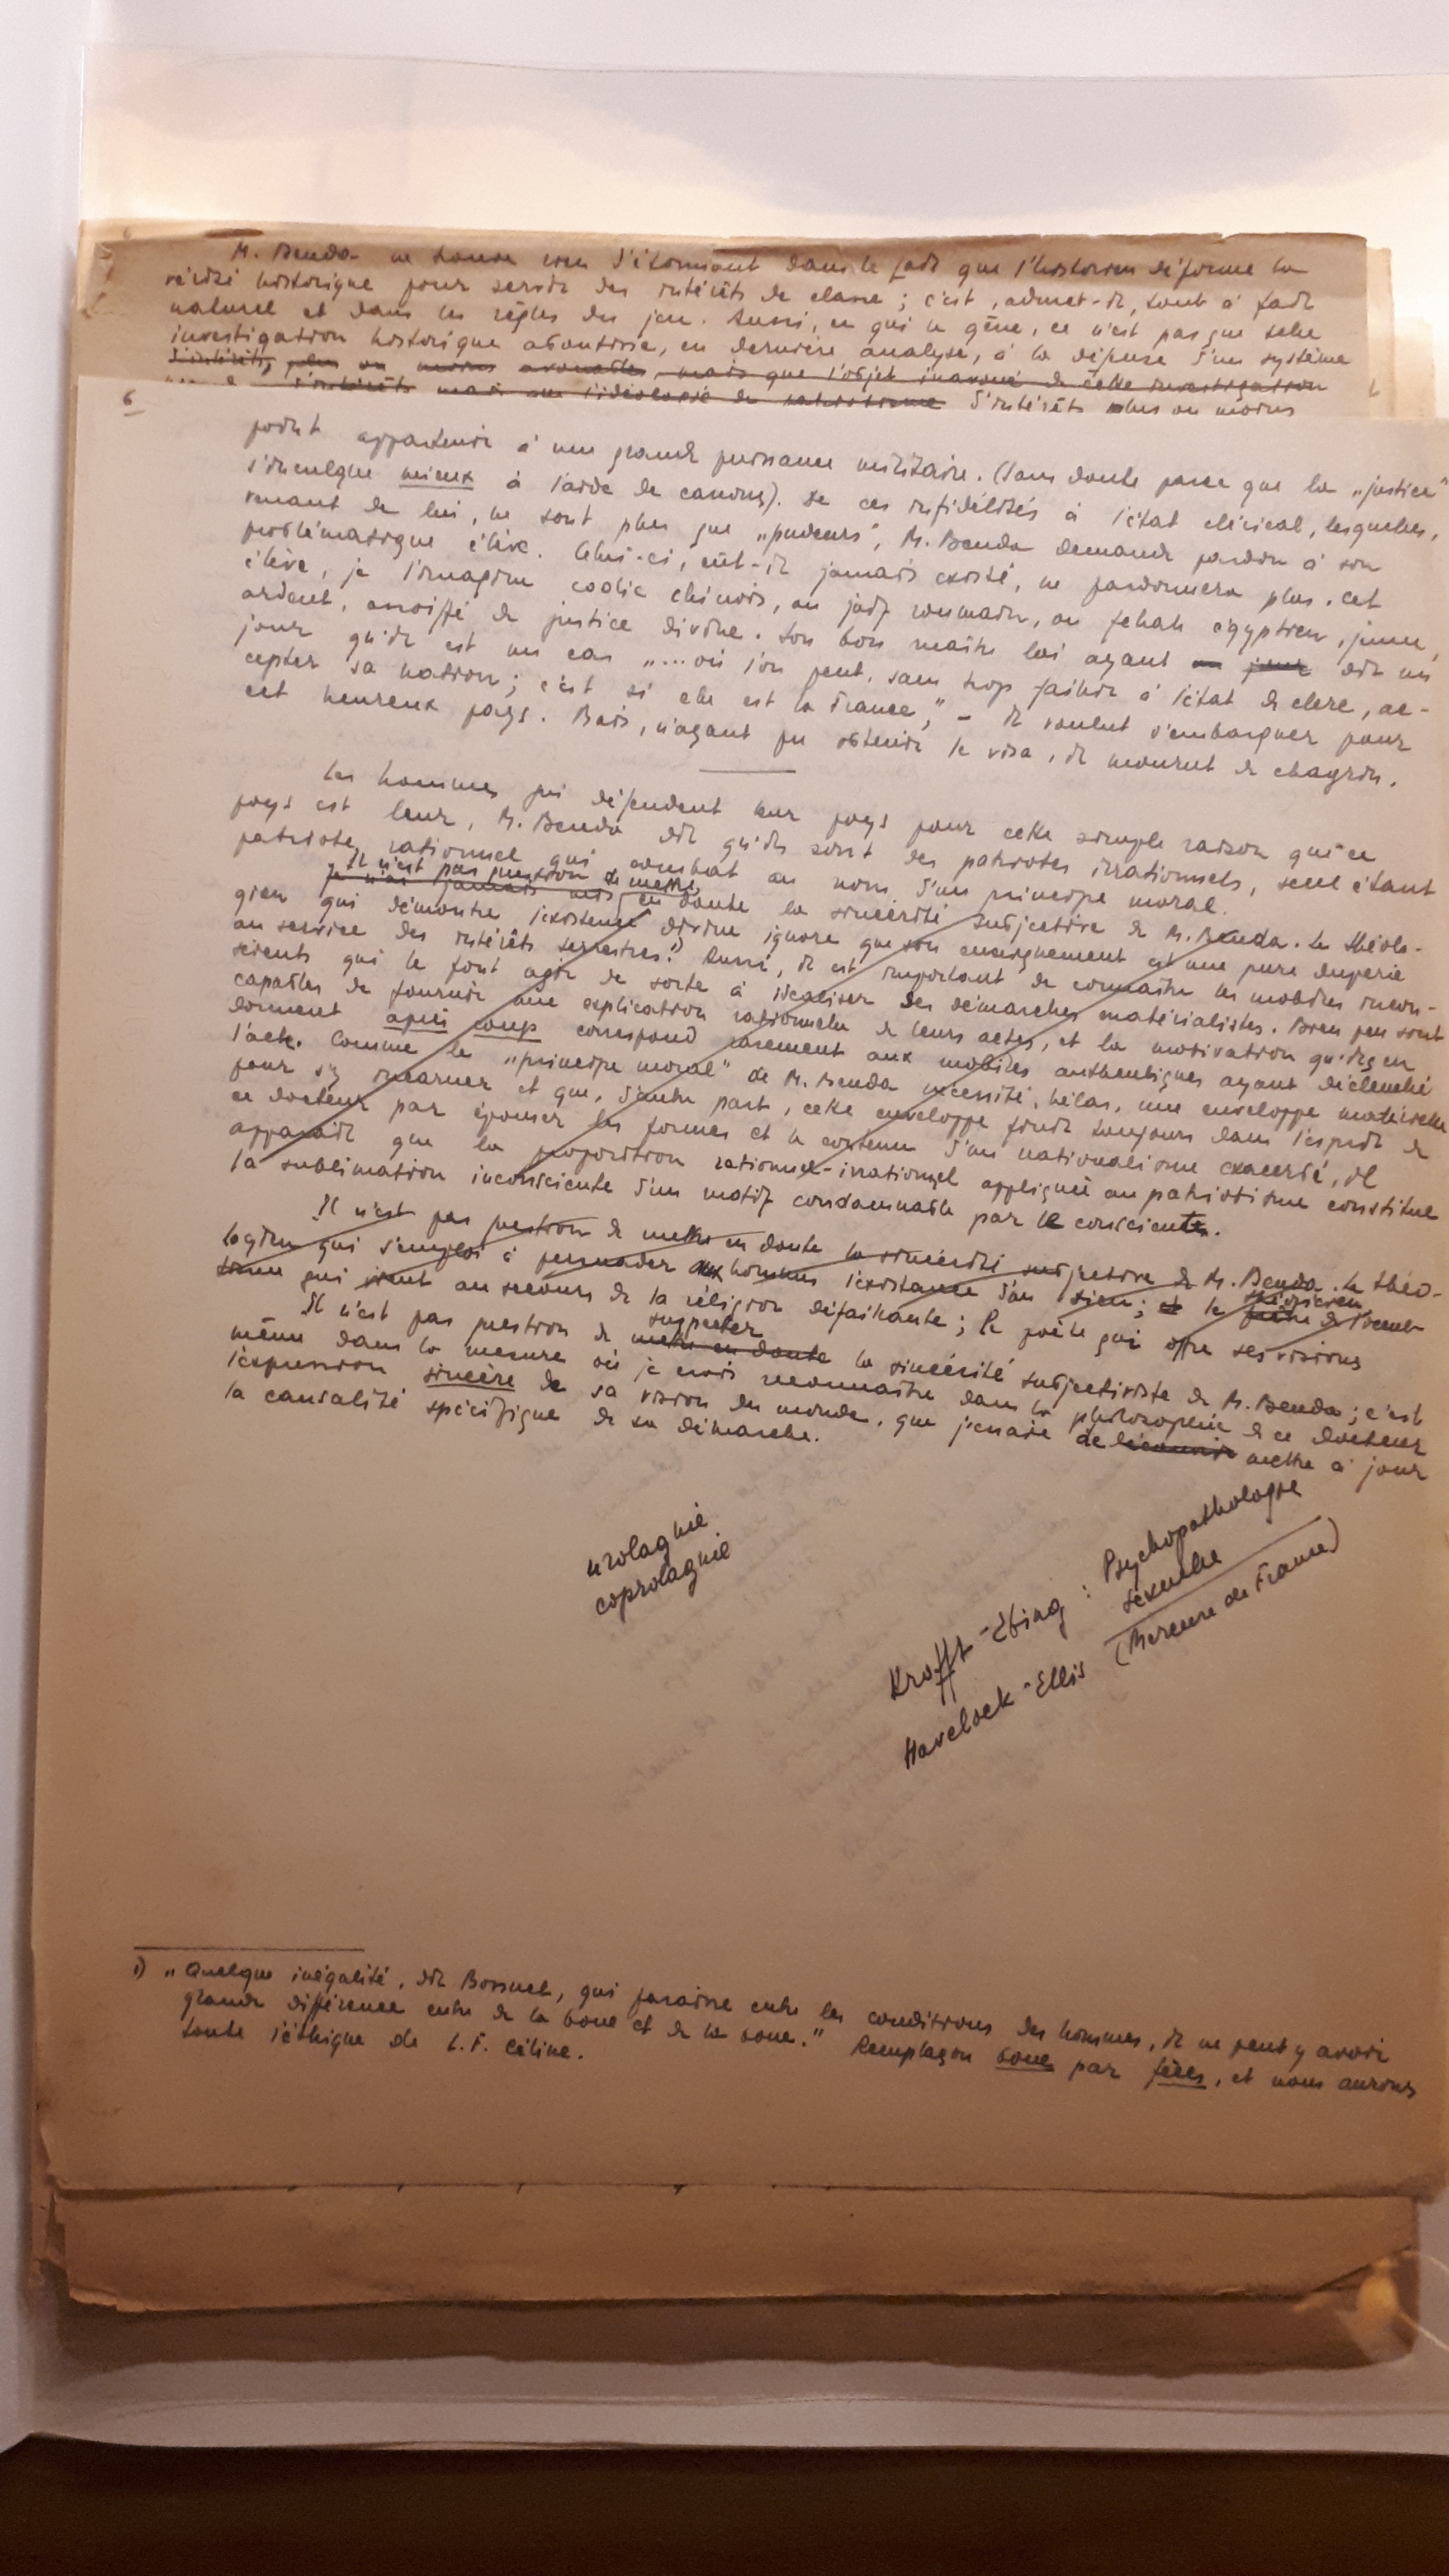 M. Benda ne trouve rien d'étonnant dans le fait que l'historien déforme la
vérité historique pour servir des intérêts de classe ; c'est, admet-il, tout à fait
naturel et dans les règles du jeu. Aussi, ce qui le gêne, ce n'est pas que telle
investigation historique aboutisse, en dernière analyse, à la défense d'un système
d'intérêts, plus ou moins avouables, mais que l'objet inavoué de cette investigation
d'intérêts mais que l'idéologie du d'intérêts plus ou moins
6
point appartenir à une grande puissance militaire. (Sans doute parce que la „justice"
s'inculque mieux à l'aide de canons). De ces infidélités à l'état clérical, lesquelles,
venant de lui, ne sont plus que „pudeurs", M. Benda demande pardon à son
problématique élève. Celui-ci, eût-il jamais existé, ne pardonnera plus. Cet
élève, je l'imagine coolie chinois, ou juif roumain, ou fellah égyptien, jeune,
ardent, assoiffé de justice divine. Son bon maître lui ayant un jour dit un
jour qu'il est un cas „... où l'on peut, sans trop faillir à l'état de clerc, ac-
cepter sa nation ; c'est si elle est la France", – il voulut s'embarquer pour
cet heureux pays. Mais, n'ayant pu obtenir le visa, il mourut de chagrin.
Les hommes qui défendent leur pays pour cette simple raison que ce
pays est leur, M. Benda dit qu'ils sont des patriotes irrationnels, seul étant
patriote rationnel qui combat au nom d'un principe moral.
Il n'est pas question de mettre
Je n'ai jamais mis en doute la sincérité subjective de M. Benda. Le théolo-
gien qui démontre l'existence divine ignore que son enseignement est une pure duperie
au service des intérêts terrestres.1) Aussi, il est important de connaître les mobiles incon-
scients qui le font agir de sorte à idéaliser des démarches matérialistes. Bien peu sont
capables de fournir une explication rationnelle de leurs actes, et la motivation qu'ils en
donnent après coup correspond rarement aux mobiles authentiques ayant déclenché
l'acte. Comme le „principe moral" de M. Benda nécessite, hélas, une enveloppe matérielle
pour s'y incarner et que, d'autre part, cette enveloppe finit toujours dans l'esprit de
ce docteur par épouser les formes et le contenu d'un nationalisme exacerbé, il
apparaît que la proposition rationnel-irrationnel appliquée au patriotisme constitue
la sublimation inconsciente d'un motif condamnable par le conscient.
Il n'est pas question de mettre en doute la sincérité subjective de M. Benda. Le théo-
logien qui s'emploi à persuader aux hommes l'existence d'un dieu ; et le
théoricien
qui vient au secours de la religion défaillante ; le poète qui offre ses visions
suspecter
Il n'est pas question de mettre en doute la sincérité subjectiviste de M. Benda ; c'est
même dans la mesure où je crois reconnaître dans la philosophie de ce docteur
l'expression sincère de sa vision du monde, que j'essaie de découvrir mettre à jour
la causalité spécifique de sa démarche.
urolagnie
coprolagnie
Krafft-Ebing : Psychopathologie
sexuelle
Havelock-Ellis (Mercure de France)
1) „Quelque inégalité, dit Bossuet, qui paraisse entre les conditions des hommes, il ne peut y avoir
grande différence entre de la boue et de la boue." Remplaçon boue par fèces, et nous aurons
toute l'éthique de L. F. Céline.